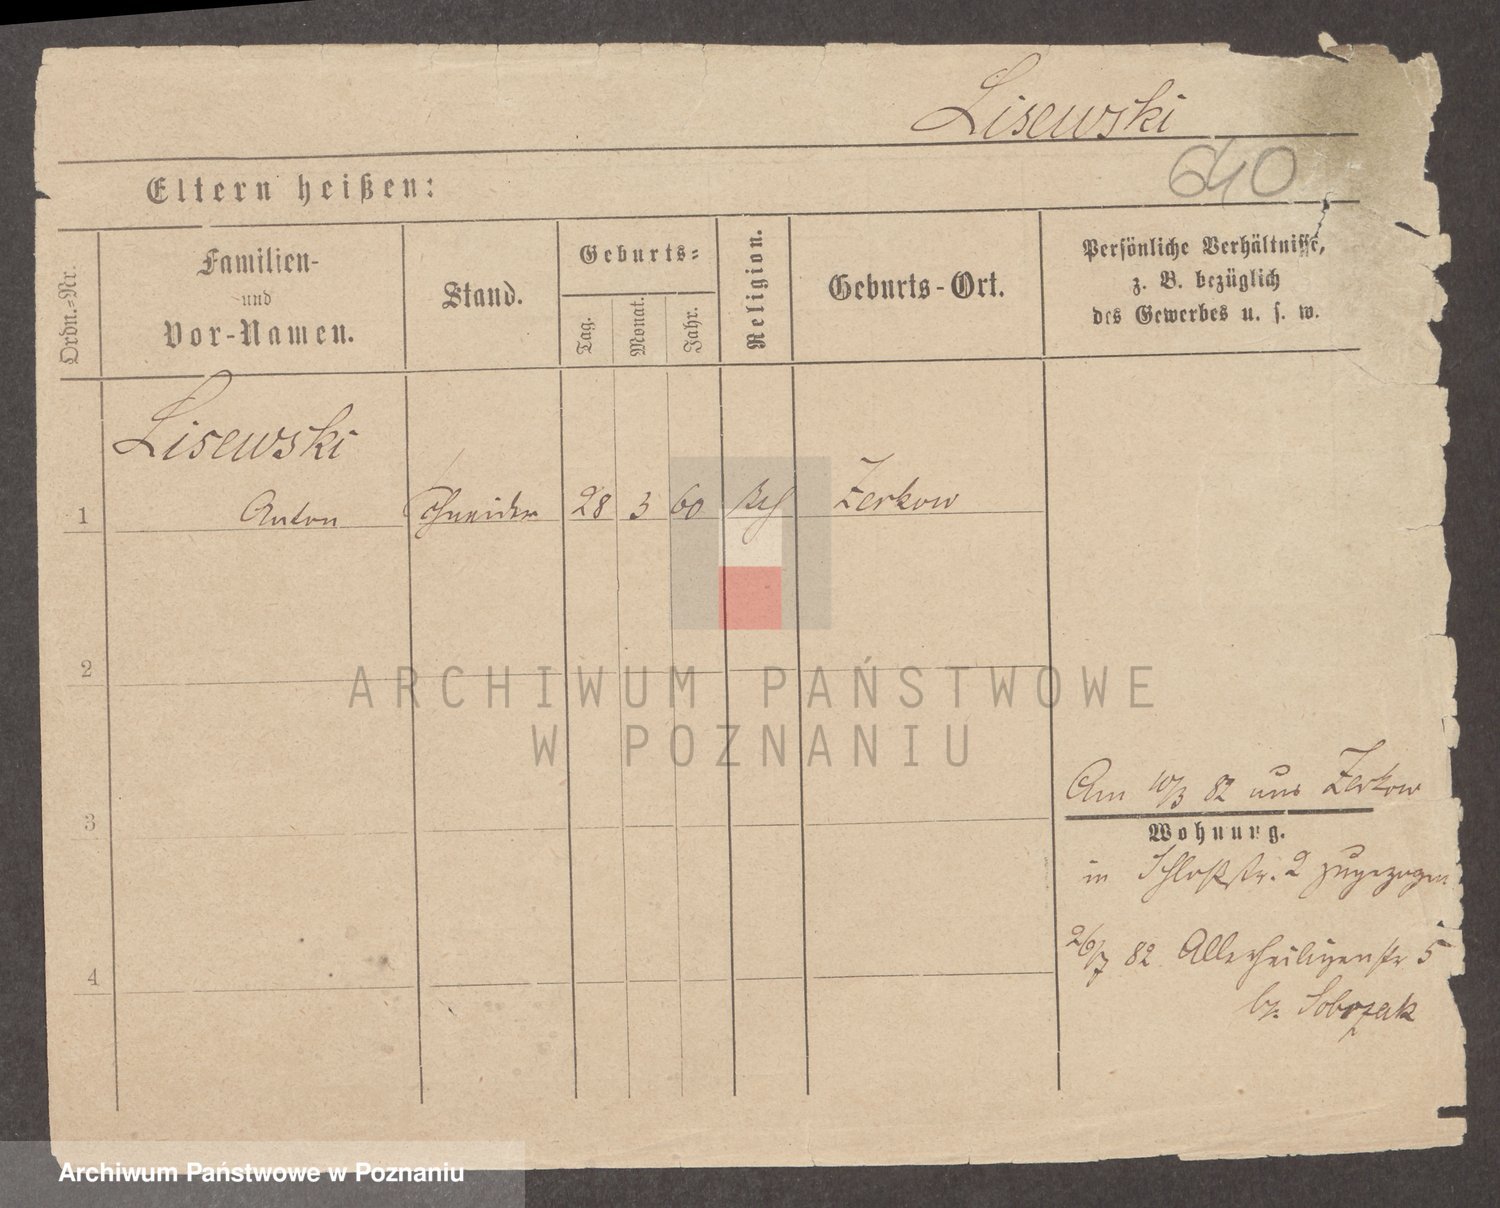 Lisewski
640
Eltern heißen:
Ordn.-Nr.
Familien-
und
Vor-Namen.
Stand.
Geburts-
Tag.
Monat.
Jahr.
Religion.
Geburts-Ort.
Persönliche Verhältnisse,
z. B. bezüglich
des Gewerbes u. s. w.
Lisewski
1 Anton Schneider 28 3 60 Zerkow
2
3
4
ARCHIWUM PAŃSTWOWE
W POZNANIU
Am 10/3 82 aus Zerkow
Wohnung.
in Schloßstr. 2 zugezogen
26/7 82 Allerheiligenstr 5
b. Sobczak
Archiwum Państwowe w Poznaniu